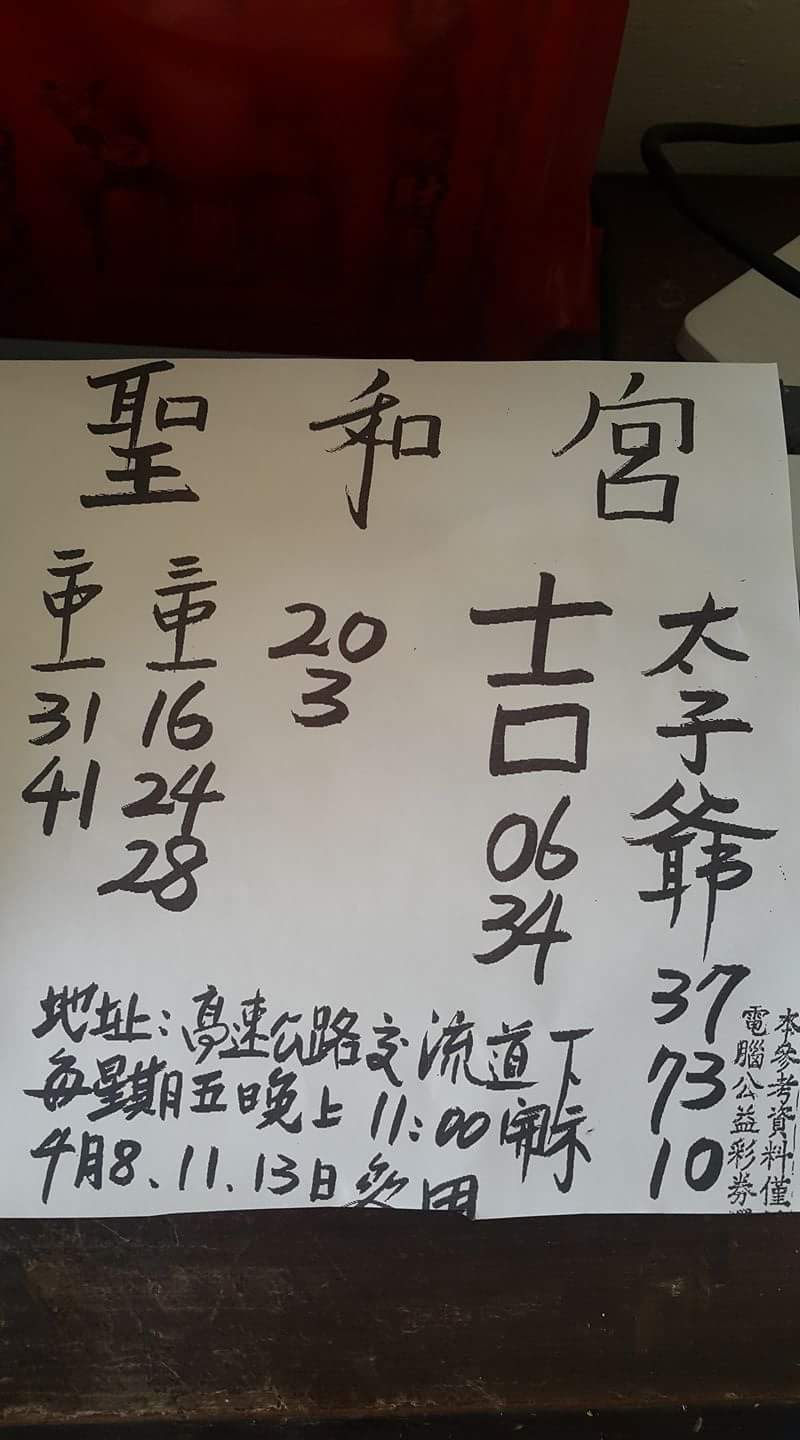 聖和宮
太子爺
37
73
10
吉
06
34
20
3
三中一
16
24
28
二中一
31
41
地址:高速公路交流道下
每星期五晚上11:00開示
4月8、11、13日參用
本參考資料僅
電腦公益彩券